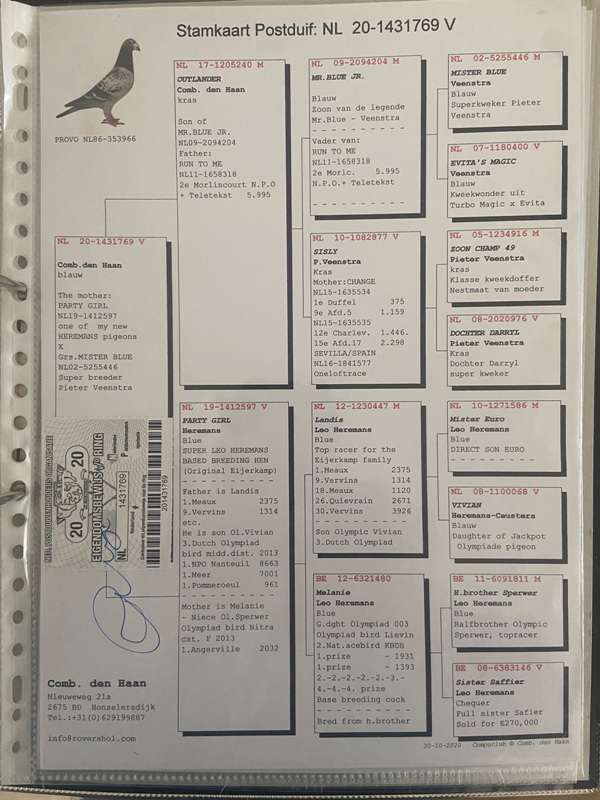 Stamkaart Postduif: NL 20-1431769 V
PROVO NL86-353966
NL 20-1431769 V
Comb.den Haan
blauw
The mother:
PARTY GIRL
NL19-1412597
one of my new
HEREMANS pigeons
X
Grs.MISTER BLUE
NL02-5255446
Super breeder
Pieter Veenstra
NL 17-1205240 M
OUTLANDER
Comb. den Haan
kras
Son of
MR.BLUE JR.
NL09-2094204
Father:
RUN TO ME
NL11-1658318
2e Morlincourt N.P.O
+ Teletekst 5.995
NL 19-1412597 V
PARTY GIRL
Heremans
Blue
SUPER LEO HEREMANS
BASED BREEDING HEN
(Original Eijerkamp)
Father is Landis
1.Meaux 2375
9.Vervins 1314
etc.
He is son Ol.Vivian
3.Dutch Olympiad
bird midd.dist. 2013
1.NPO Nanteuil 8663
1.Meer 7001
1.Pommeroeul 961
Mother is Melanie
- Niece Ol.Sperwer
Olympiad bird Nitra
cat. F 2013
1.Angerville 2032
NL 09-2094204 M
MR.BLUE JR.
Blauw
Zoon van de legende
Mr.Blue - Veenstra
Vader van:
RUN TO ME
NL11-1658318
2e Morlc. 5.995
N.P.O.+ Teletekst
NL 10-1082877 V
SISLY
P.Veenstra
Kras
Mother:CHANGE
NL15-1635534
1e Duffel 375
9e Afd.5 1.159
NL15-1635535
12e Charlev. 1.446.
15e Afd.17 2.298
SEVILLA/SPAIN
NL16-1841577
Oneloftrace
NL 12-1230447 M
Landis
Leo Heremans
Blue
Top racer for the
Eijerkamp family
1.Meaux 2375
9.Vervins 1314
18.Meaux 1120
26.Quievrain 2671
30.Vervins 3926
Son Olympic Vivian
3.Dutch Olympiad
BE 12-6321480
Melanie
Leo Heremans
Blue
G.dght Olympiad 003
Olympiad bird Lievin
2.Nat.acebird KBDB
1.prize - 1931
1.prize - 1393
2.-2.-2.-2.-2.-3.-
4.-4.-4. prize
Base breeding cock
Bred from h.brother
NL 02-5255446 M
MISTER BLUE
Veenstra
Blauw
Superkweker Pieter
Veenstra
NL 07-1180400 V
EVITA'S MAGIC
Veenstra
Blauw
Kweekwonder uit
Turbo Magic x Evita
NL 05-1234916 M
ZOON CHAMP 49
Pieter Veenstra
kras
Klasse kweekdoffer
Nestmaat van moeder
NL 08-2020976 V
DOCHTER DARRYL
Pieter Veenstra
Kras
Dochter Darryl
super kweker
NL 10-1271586 M
Mister Euro
Leo Heremans
Blue
DIRECT SON EURO
NL 08-1100068 V
VIVIAN
Heremans-Ceusters
Blauw
Daughter of Jackpot
Olympiade pigeon
BE 11-6091811 M
H.brother Sperwer
Leo Heremans
Blue
Halfbrother Olympic
Sperwer, topracer
BE 08-6383146 V
Sister Saffier
Leo Heremans
Chequer
Full sister Safier
Sold for E270,000
NED. POSTDUIVENHOUDERS ORGANISATIE
20 20
EIGENDOMSBEWIJS RING
NL 1431769
201431769
Comb. den Haan
Nieuweweg 21a
2675 BD Honselersdijk
Tel.:+31(0)629199887
info@rovershol.com
30-10-2020 Compuclub © Comb. den Haan